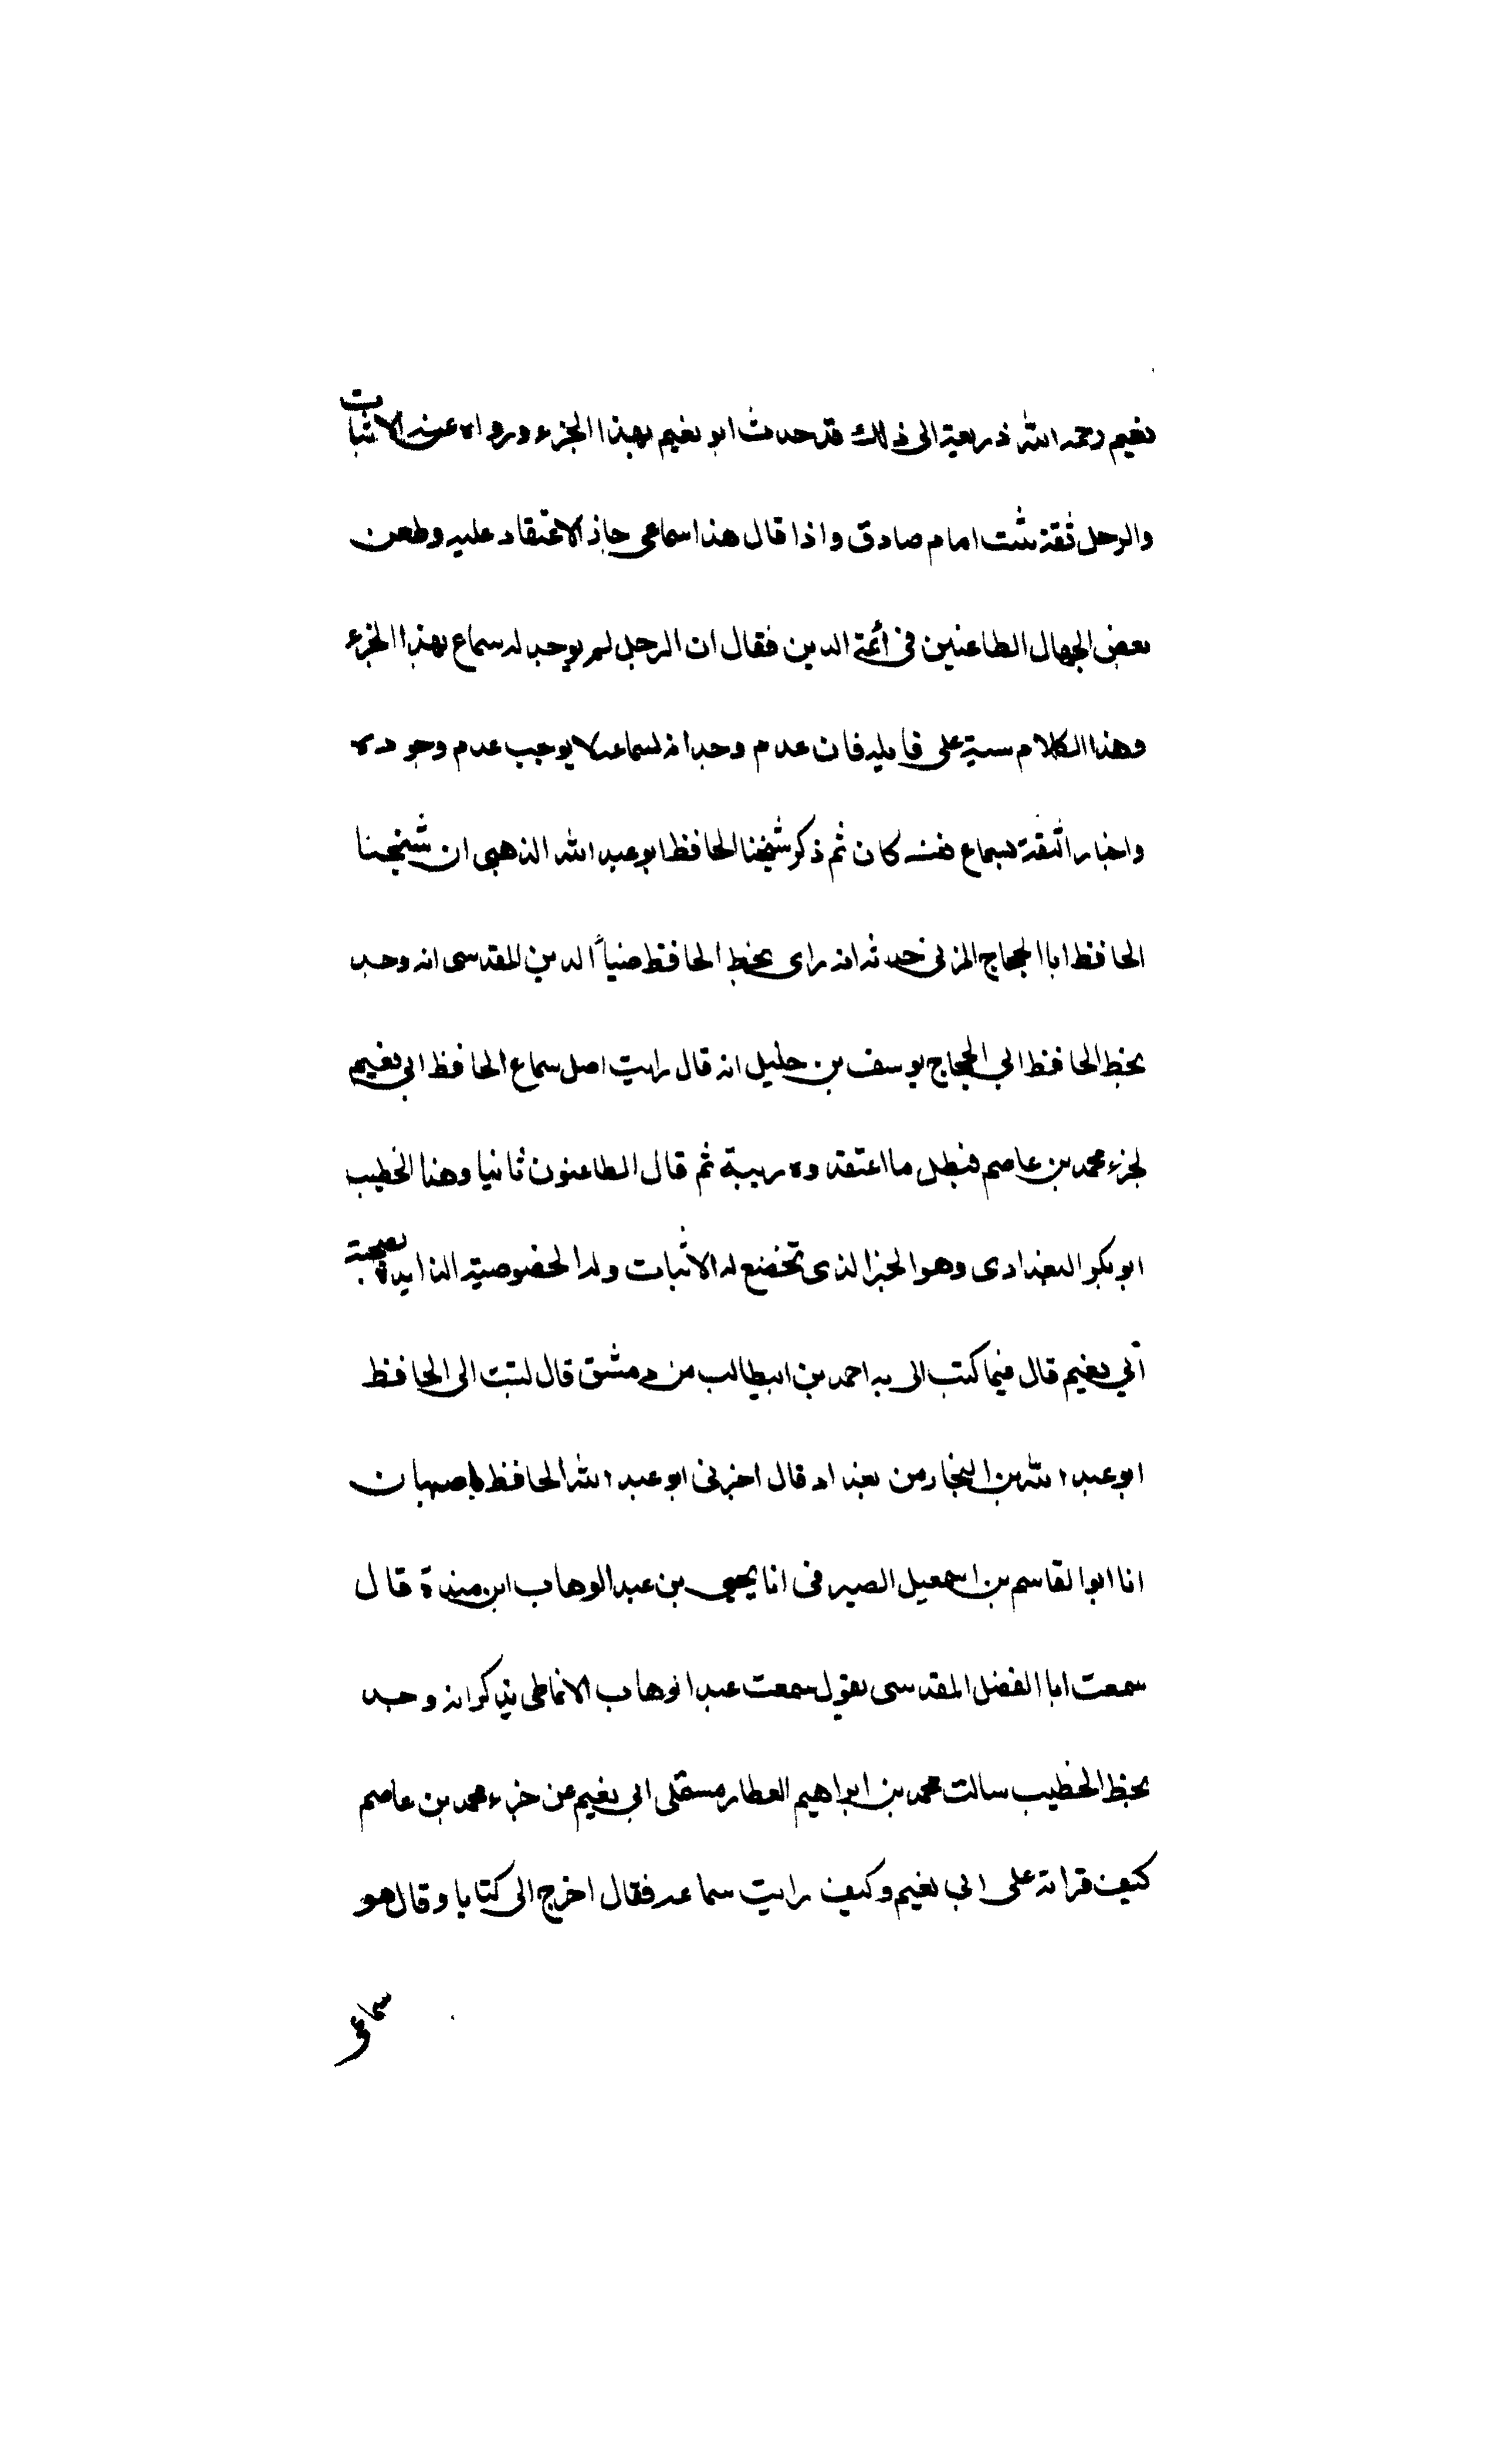 نعيم رحمه الله ذريعة الى ذلك قد حدث ابو نعيم بهذا الجزء ورواه عنه الاثبات
والرجل ثقة ثبت امام صادق واذا قال هذا سماعي جاز الاعتماد عليه وطعن
بعض الجهال الطاعنين في أئمة الدين فقال ان الرجل لم يوجد له سماع بهذا الجزء
وهذا الكلام سبة على قايله فان عدم وجدانه لسماعه لا يوجب عدم وجوده
واخبار الثقة بسماع نفسه كان ثم ذكر شيخنا الحافظ ابو عبد الله الذهبي ان شيخنا
الحافظ ابا الحجاج المزني حدثه انه راى بخط الحافظ ضياء الدين المقدسي انه وجد
بخط الحافظ ابي الحجاج يوسف بن خليل انه قال رايت اصل سماع الحافظ ابي نعيم
لجزء محمد بن عاصم فبطل ما اعتقدوه ريبة ثم قال الطاعنون ثانيا وهنا الخطيب
ابو بكر البغدادي وهو الحبر الذي تخضع له الاثبات وله الخصوصية الزايدة بصحبة
أبي نعيم قال فيما كتب الى به احمد بن ابيطالب من دمشق قال كتبت الى الحافظ
ابو عبد الله بن النجار من بغداد قال اخبرني ابو عبد الله الحافظ باصبهان
انا ابو القاسم بن اسمعيل الصيرفي انا يحيى بن عبد الوهاب ابن مندة قال
سمعت ابا الفضل المقدسي يقول سمعت عبد الوهاب الانماطي يذكر انه وجد
بخط الخطيب سالت محمد بن ابراهيم العطار مستملى ابي نعيم عن جزء محمد بن عاصم
كيف قراته على ابي نعيم وكيف رايت سماعه فقال اخرج الى كتابا وقال هو
سماعي